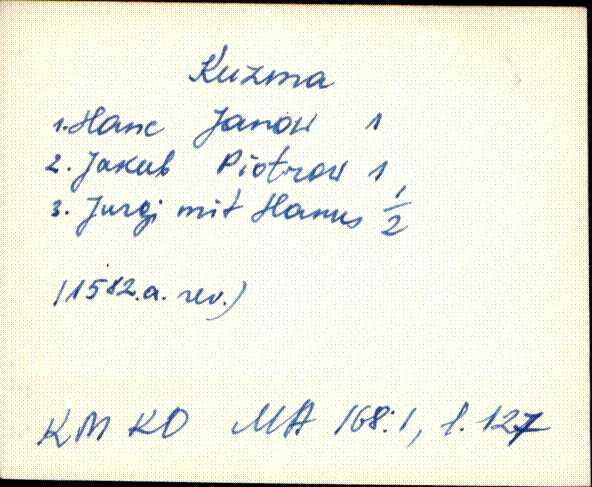 Kuzma
1. Hanc Janow 1
2. Jakub Piotrow 1
3. Jurgi mit Hanus 1/2
(1582.a. rev.)
KM KO MA 168:1, l. 127